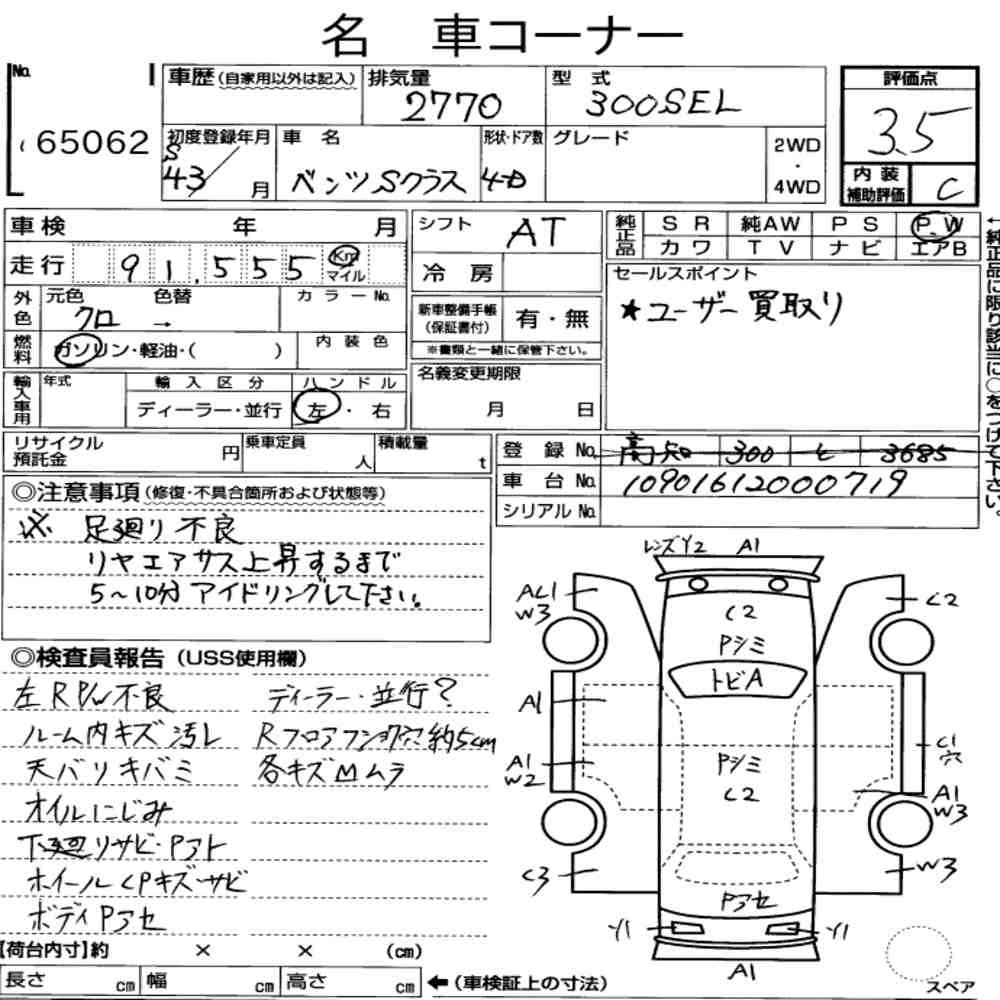 名 車コーナー
No.
65062
車歴(自家用以外は記入)
排気量
2770
型 式
300SEL
評価点
3.5
初度登録年月
S
43/ 月
車 名
ベンツSクラス
形状・ドア数
4D
グレード
2WD
・
4WD
内 装
補助評価
C
車検 年 月
走行 91,555 Km
マイル
シフト
AT
冷 房
純正品
SR 純AW PS P.W
カワ TV ナビ エアB
←純正品に限り該当に○をつけて下さい。
外色
元色 色替
クロ →
カラーNo.
燃料
ガソリン・軽油・( )
内 装 色
新車整備手帳
(保証書付)
有・無
※書類と一緒に保管下さい。
セールスポイント
★ユーザー買取り
輸入車用
年式
輸 入 区 分
ディーラー・並行
ハ ン ド ル
左・右
名義変更期限
月 日
リサイクル
預託金
円
乗車定員
人
積載量
t
登 録 No. 高知 300 と 3685
車 台 No. 10901612000719
シリアルNo.
◎注意事項(修復・不具合箇所および状態等)
※ 足廻り不良
リヤエアサス上昇するまで
5〜10分アイドリングして下さい。
◎検査員報告(USS使用欄)
左R P/W不良 ディーラー・並行?
ルーム内キズ汚レ Rフロアフン 穴約5cm
天バリキバミ 各キズMムラ
オイルにじみ
下廻りサビ・Pアト
ホイールCPキズ・サビ
ボディPアセ
レンズY2 A1
AL1
W3
C2
C2
Pシミ
トビA
A1
A1
W2
Pシミ
C2
C1
穴
A1
W3
C3
W3
Pアセ
Y1
Y1
A1
スペア
【荷台内寸】約 × × (cm)
長さ cm 幅 cm 高さ cm ←(車検証上の寸法)